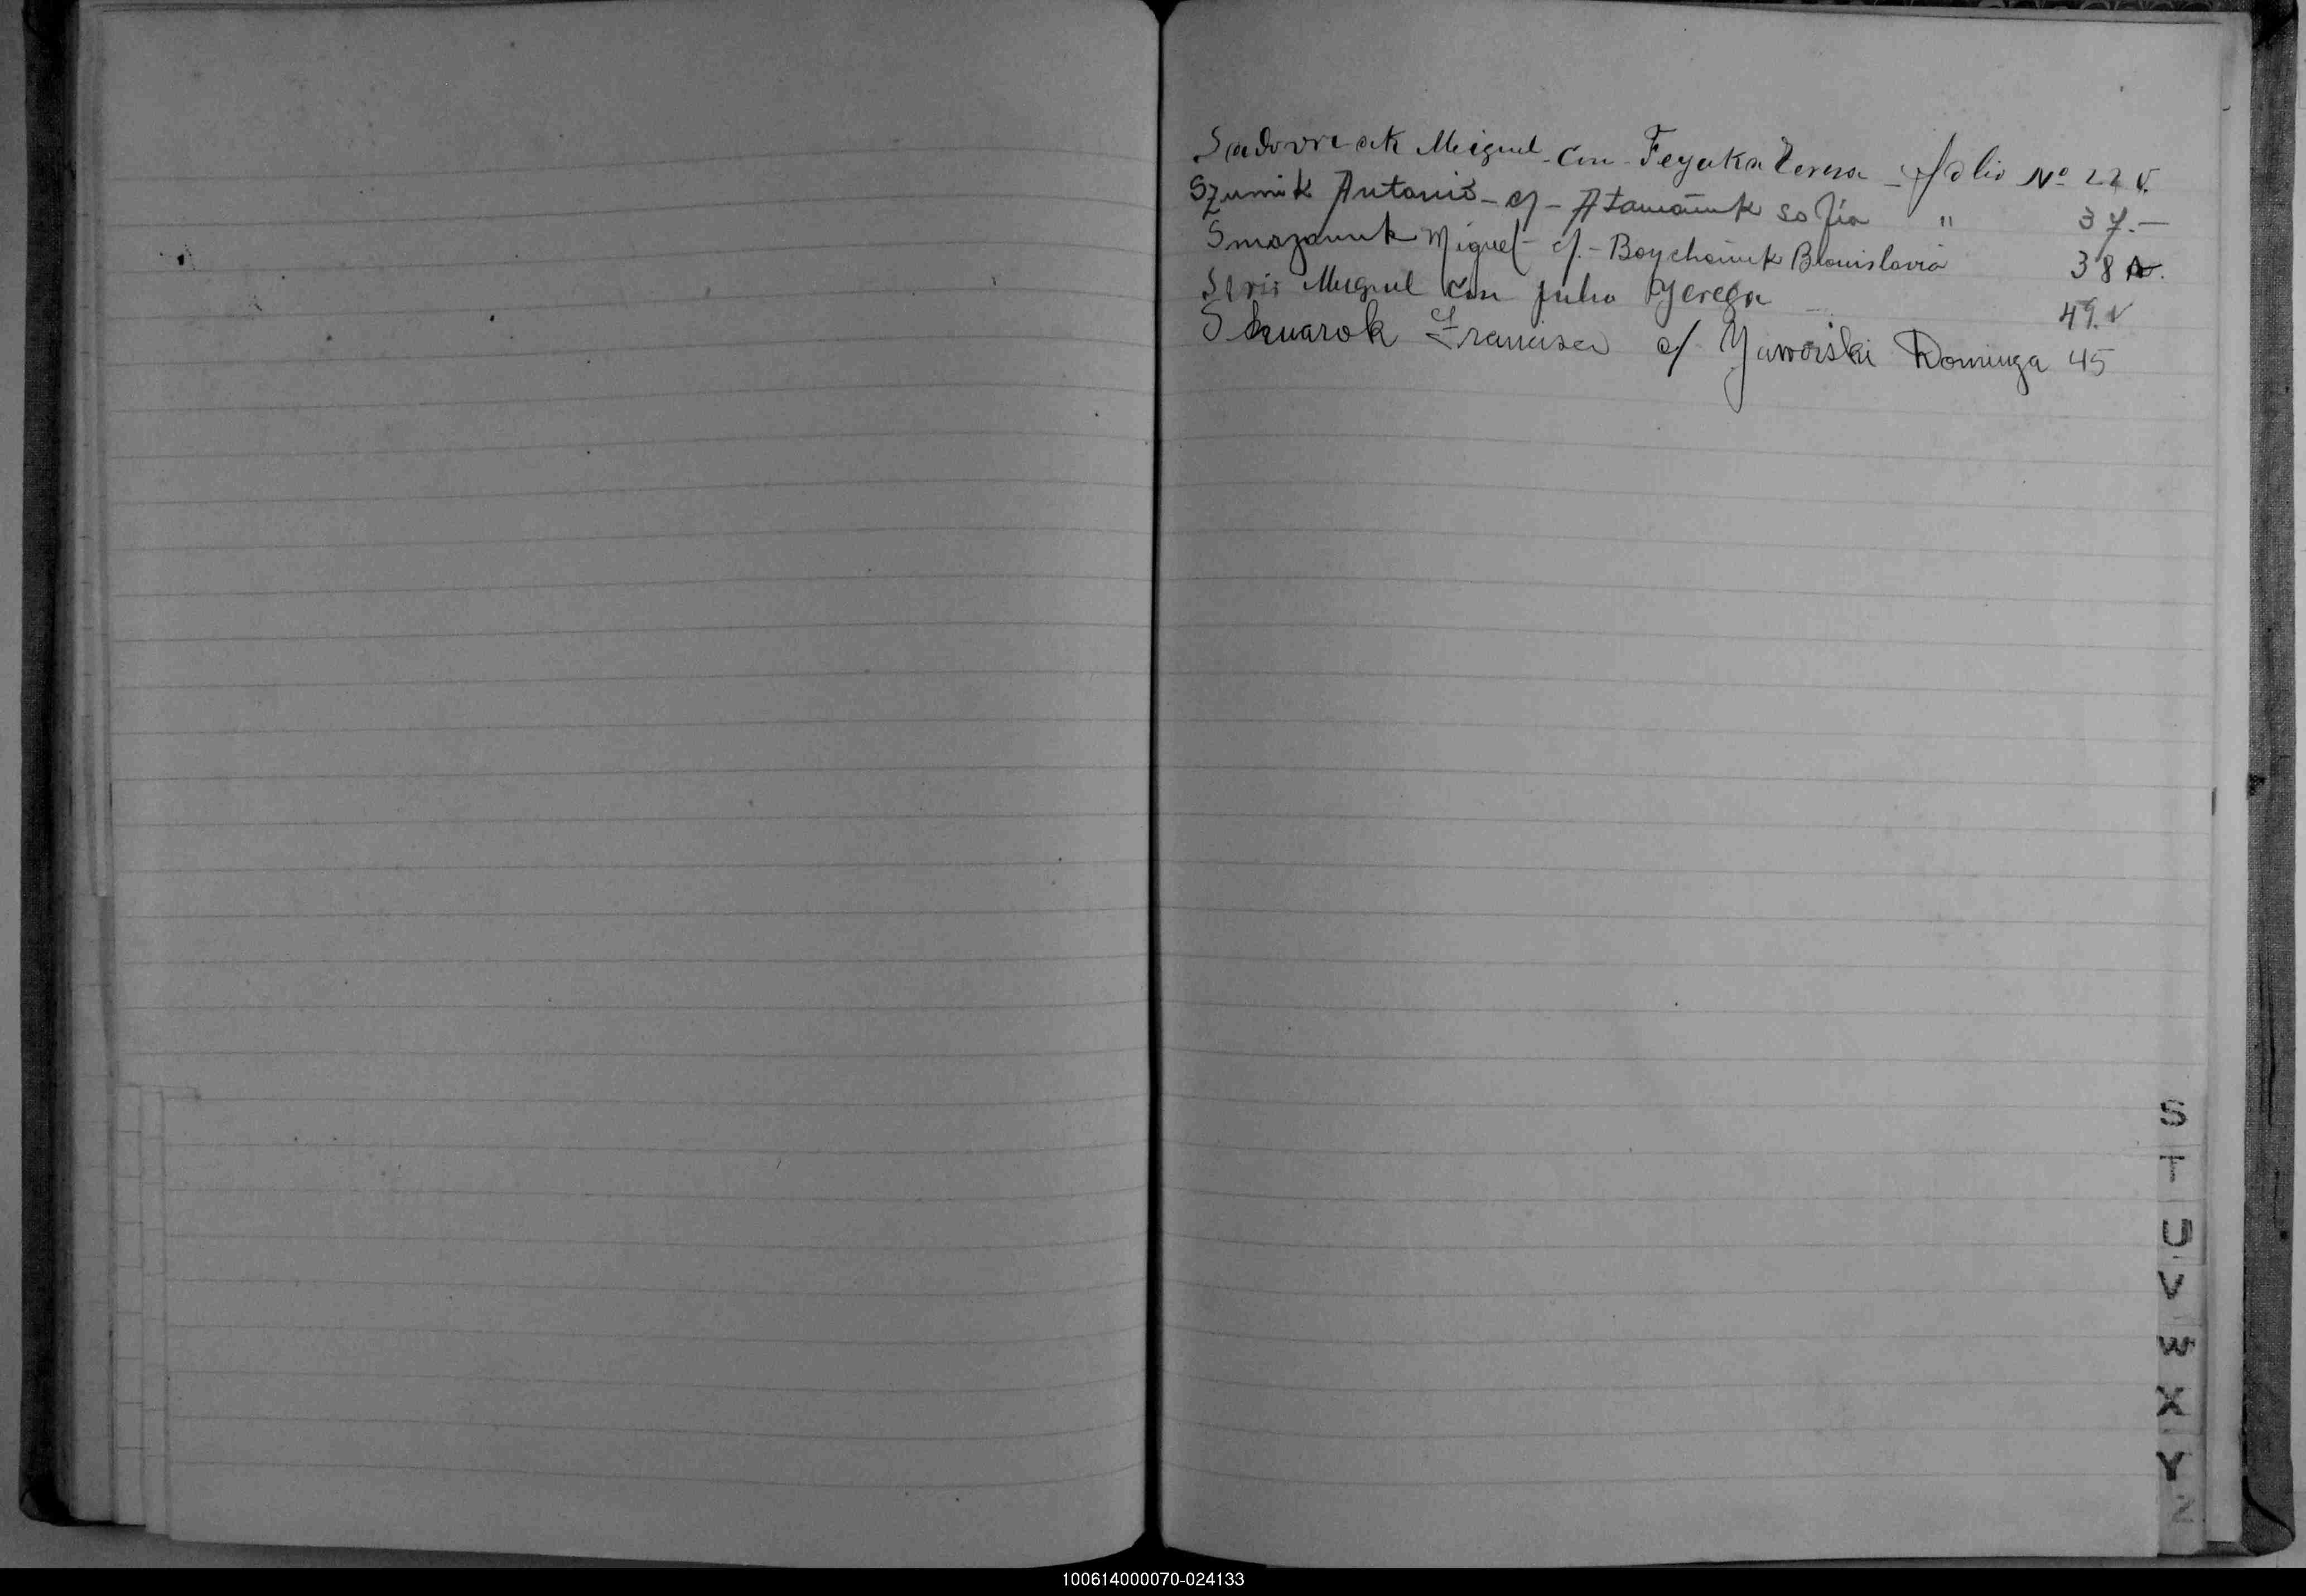 Sadovnick Miguel - Con - Feyuka Teresa - folio Nº 22 v.
Szumik Antonio - c/ - Atamañuk Sofia " 37.-
Smazanuk Miguel - c/. - Boychañuk Bronislavia 38 v.
Miguel Con Julia Yerega 49. v
Skwarok Francisco c/ Yaworski Dominga 45
S
T
U
V
W
X
Y
Z
100614000070-024133